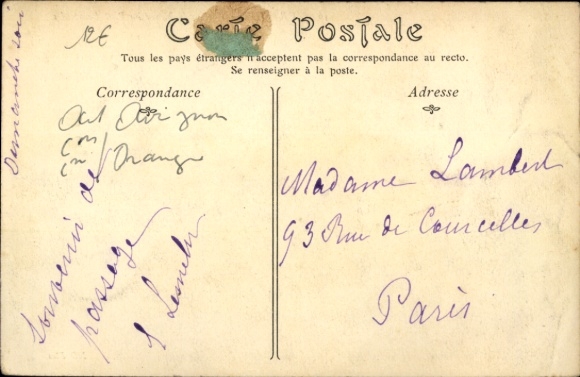 12€
Carte Postale
Tous les pays étrangers n'acceptent pas la correspondance au recto.
Se renseigner à la poste.
Correspondance
Adresse
Avignon
Orange
Souvenir de
passage
Madame Lambert
93 Rue de Courcelles
Paris